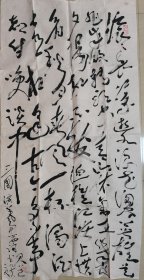 滚滚长江东逝水浪花淘尽英
雄是非成败转头空青山依旧在几度
夕阳红白发渔樵江渚上惯
看秋月春风一壶浊酒
喜相逢古今多少事
都付笑谈中
三国演义